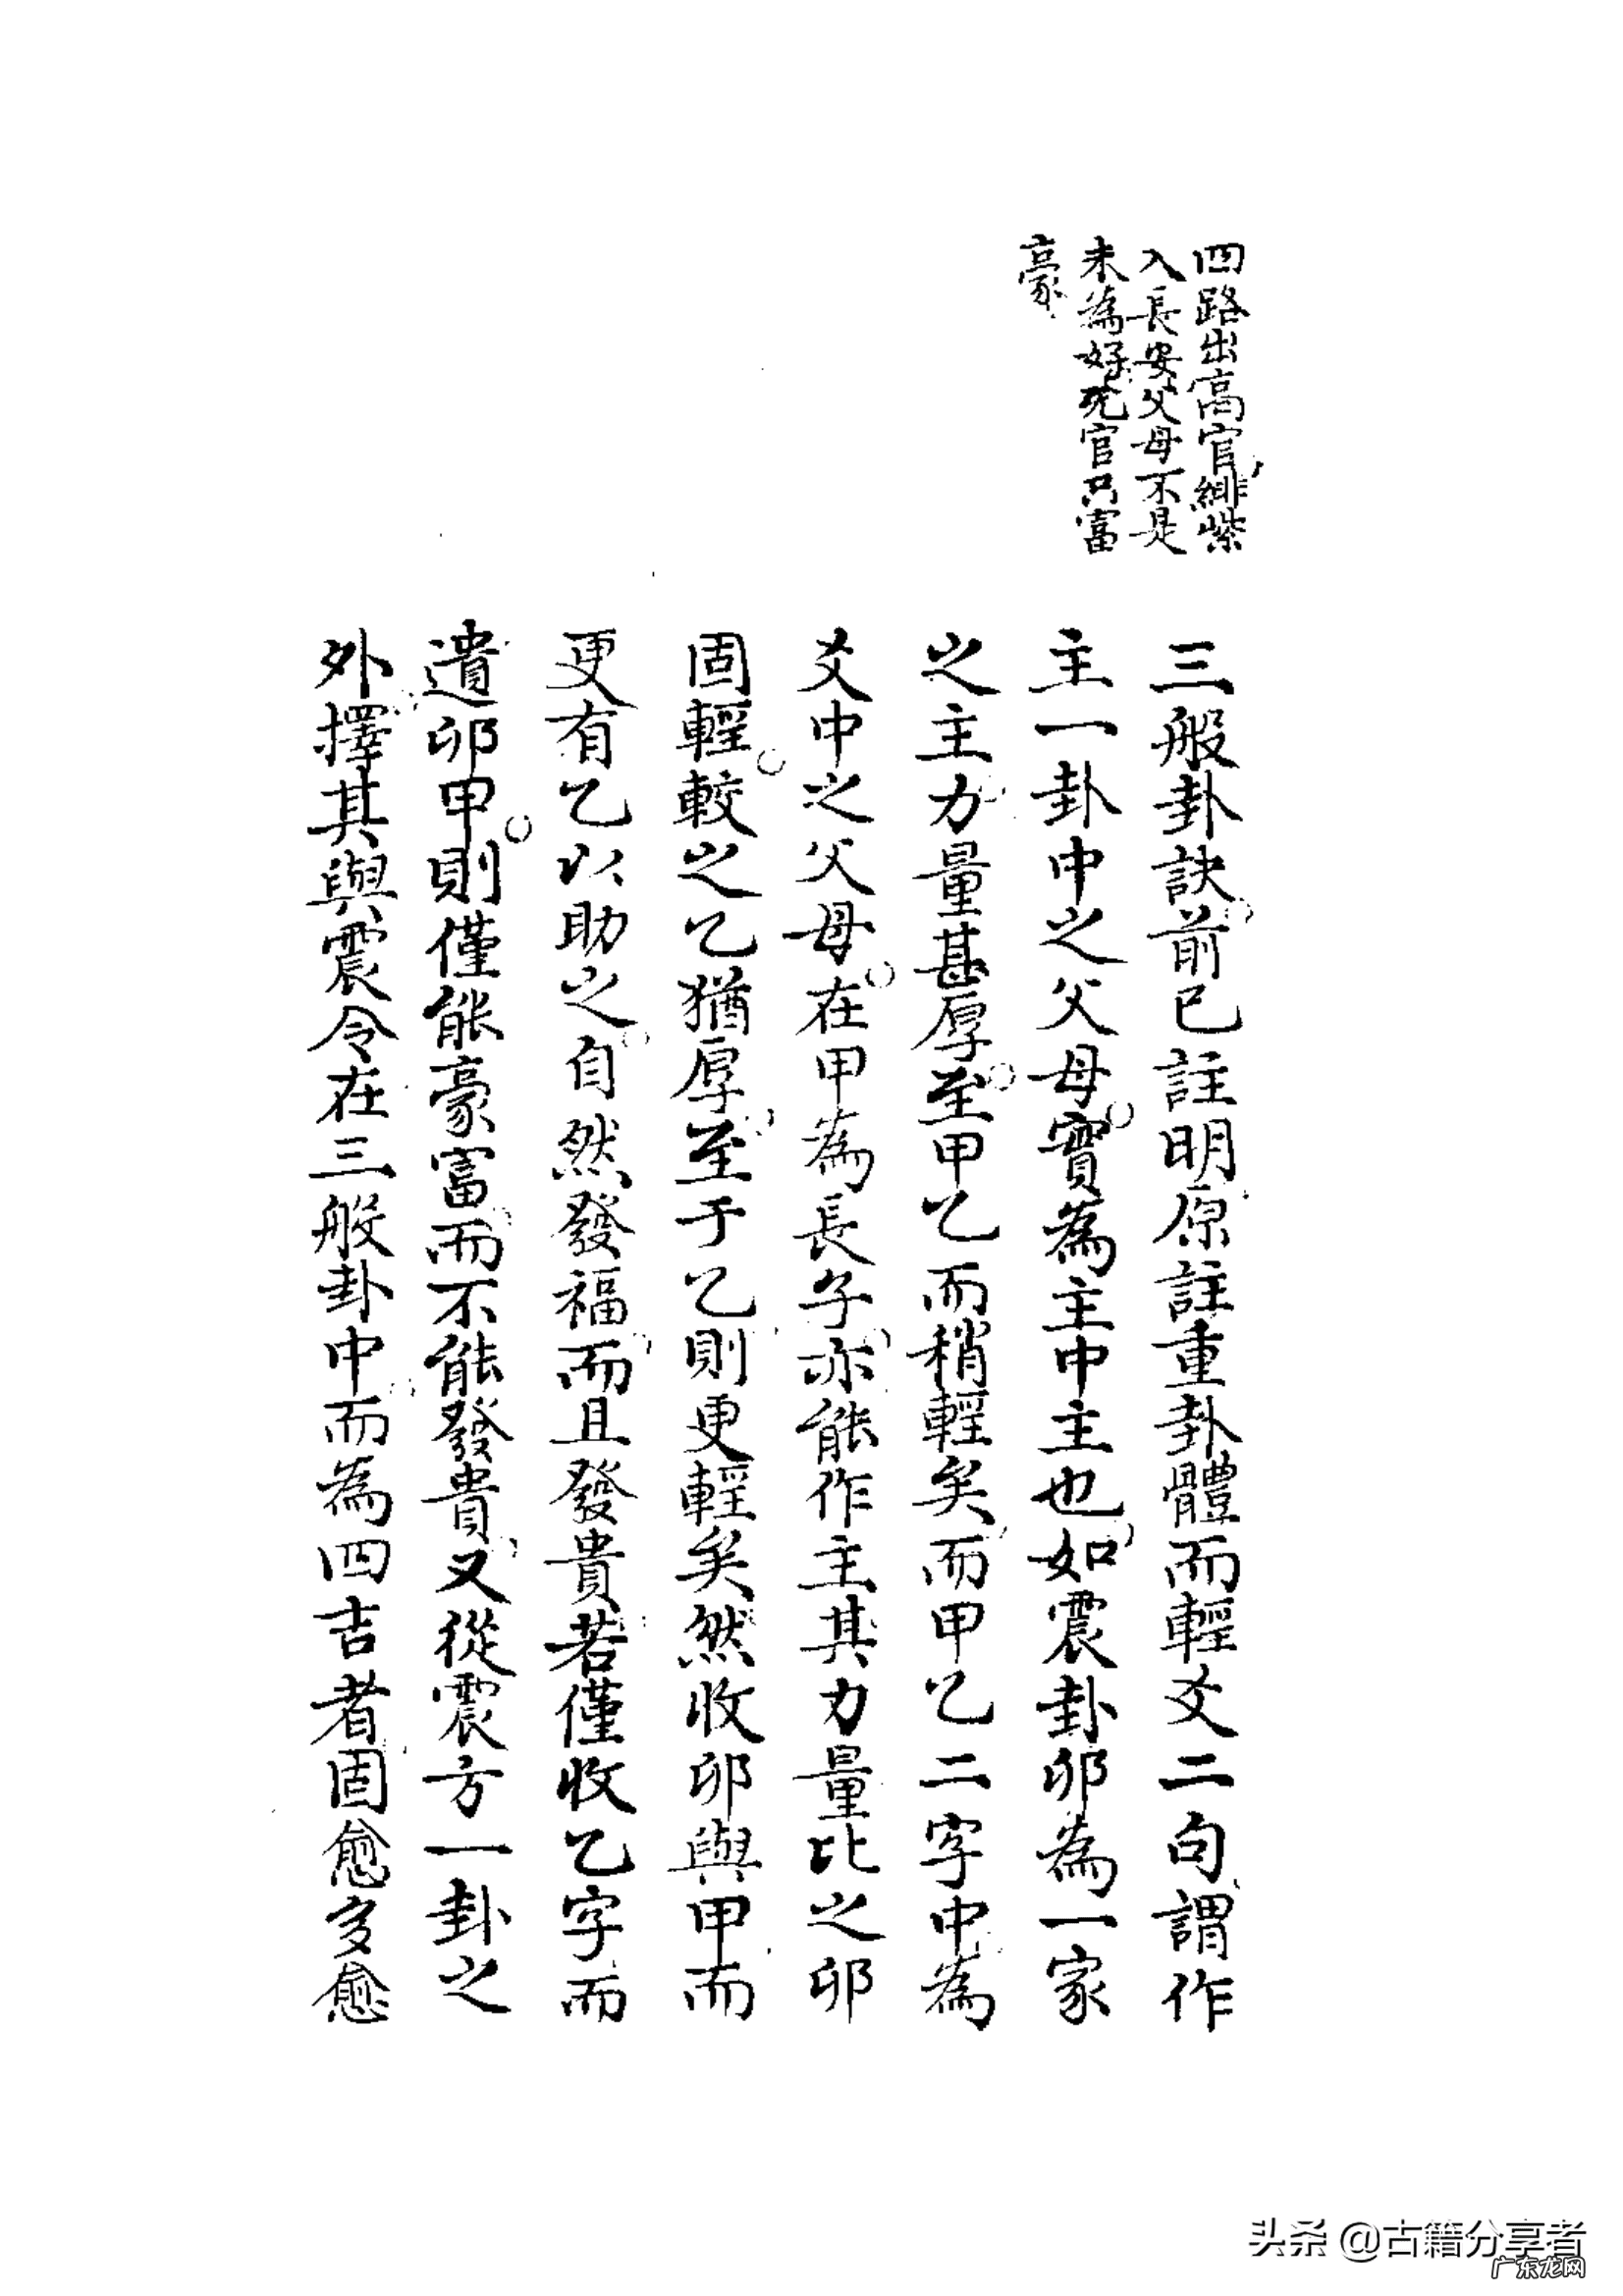 四路出高官緋紫
入長安父母不是
未為好无官只富
豪
三般卦訣前已註明原註重卦體而輕爻二句謂作
主一卦中之父母實為主中主也如震卦卯為一家
之主力量甚厚至甲乙而稍輕矣而甲乙二字中為
爻中之父母在甲為長子亦能作主其力量比之卯
固輕較之乙猶厚至于乙則更輕矣然收卯與甲而
更有乙以助之自然發福而且發貴若僅收乙字而
遺卯甲則僅能豪富而不能發貴又從震方一卦之
外擇其與震令在三般卦中而為四吉者固愈多愈
头条 @古籍分享者
广东龙网